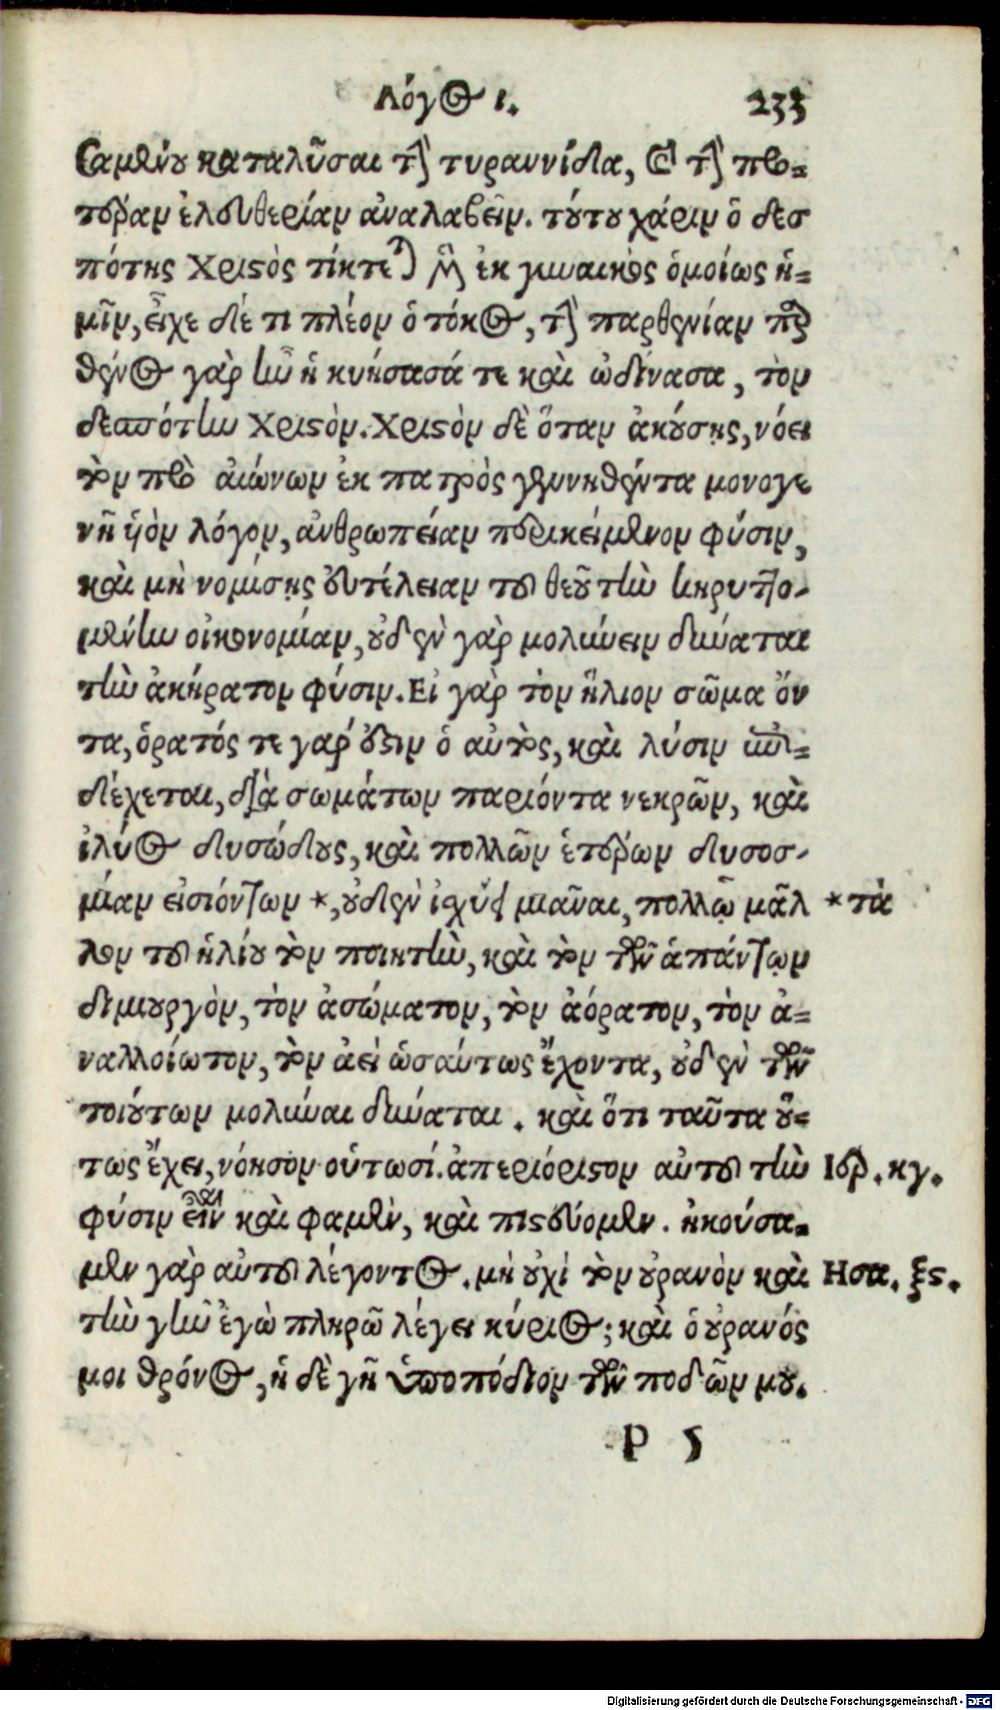 Λόγος ι.
233
σαμένου καταλῦσαι τὴν τυραννίδα, καὶ τὴν προ-
τέραν ἐλευθερίαν ἀναλαβεῖν. τούτου χάριν ὁ δεσ
πότης Χριστὸς τίκτεται μὲν ἐκ γυναικὸς ὁμοίως ἡ-
μῖν, εἶχε δέ τι πλέον ὁ τόκος, τὴν παρθενίαν παρ
θένος γὰρ ἦν ἡ κυήσασά τε καὶ ὠδίνασα, τὸν
δεσπότην Χριστὸν. Χριστὸν δὲ ὅταν ἀκούσῃς, νόει
τὸν πρὸ αἰώνων ἐκ πατρὸς γεννηθέντα μονογε
νῆ υἱὸν λόγον, ἀνθρωπείαν περικείμενον φύσιν,
καὶ μὴ νομίσῃς εὐτέλειαν τοῦ θεοῦ τὴν κηρυττο-
μένην οἰκονομίαν, οὐδὲν γὰρ μολύνειν δύναται
τὴν ἀκήρατον φύσιν. Εἰ γὰρ τὸν ἥλιον σῶμα ὄν
τα, ὁρατός τε γάρ ἐστιν ὁ αὐτὸς, καὶ λύσιν ἐπι-
δέχεται, διὰ σωμάτων παριόντα νεκρῶν, καὶ
ἰλύος δυσώδους, καὶ πολλῶν ἑτέρων δυσοσ-
μίαν εἰσιόντων *, οὐδὲν ἰσχύει μιᾶναι, πολλῷ μᾶλ
* τὰ
λον τοῦ ἡλίου τὸν ποιητὴν, καὶ τὸν τῶν ἁπάντων
δημιουργὸν, τὸν ἀσώματον, τὸν ἀόρατον, τὸν ἀ-
ναλλοίωτον, τὸν ἀεὶ ὡσαύτως ἔχοντα, οὐδὲν τῶν
τοιούτων μολύναι δύναται. καὶ ὅτι ταῦτα οὕ-
τως ἔχει, νόησον οὑτωσί. ἀπεριόριστον αὐτοῦ τὴν
Ιερ. κγ.
φύσιν εἶναι καὶ φαμὲν, καὶ πιστεύομεν. ἠκούσα-
μεν γὰρ αὐτοῦ λέγοντος. μὴ οὐχὶ τὸν οὐρανὸν καὶ
Ησα. ξς.
τὴν γῆν ἐγὼ πληρῶ λέγει κύριος; καὶ ὁ οὐρανός
μοι θρόνος, ἡ δὲ γῆ ὑποπόδιον τῶν ποδῶν μου.
P 5
Digitalisierung gefördert durch die Deutsche Forschungsgemeinschaft - DFG